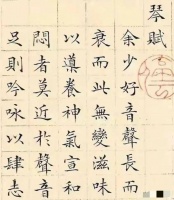 琴賦
余少好音聲長而
衰而此無變滋味
以導養神氣宣和
悶者莫近於聲音
足則吟詠以肆志